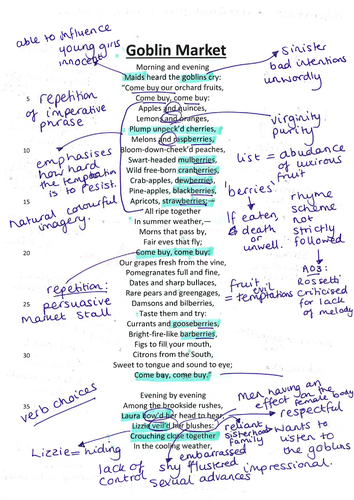 able to influence
young girls
innocent
Goblin Market
Sinister
bad intentions
unwordly
Morning and evening
Maids heard the goblins cry:
"Come buy our orchard fruits,
Come buy, come buy:
5
Apples and quinces,
Lemons and oranges,
Plump unpeck'd cherries,
Melons and raspberries,
10
Bloom-down-cheek'd peaches,
Swart-headed mulberries,
Wild free-born cranberries,
Crab-apples, dewberries,
Pine-apples, blackberries,
15
Apricots, strawberries;—
All ripe together
In summer weather,—
Morns that pass by,
Fair eves that fly;
20
Come buy, come buy:
Our grapes fresh from the vine,
Pomegranates full and fine,
Dates and sharp bullaces,
Rare pears and greengages,
25
Damsons and bilberries,
Taste them and try:
Currants and gooseberries,
Bright-fire-like barberries,
Figs to fill your mouth,
30
Citrons from the South,
Sweet to tongue and sound to eye;
Come buy, come buy."
Evening by evening
Among the brookside rushes,
35
Laura bow'd her head to hear,
Lizzie veil'd her blushes:
Crouching close together
In the cooling weather,
repetition
of imperative
phrase
emphasises
how hard
the temptation
is to resist.
Natural colourful
imagery.
repetition:
persuasive
Market stall
verb choices
Lizzie = hiding
lack of
control
shy flustered
embarrassed
sexual advances
impressional.
virginity
purity
list = abudance
of luxirous
fruit
'berries'
If eaten,
death
or
unwell.
rhyme
scheme
not
strictly
followed
AO3:
Rossetti
criticised
for lack
of melody
fruit = evil
temptations
Men having an
effect on the female body
respectful
reliant
sisterhood
family
Wants to
listen to
the goblins